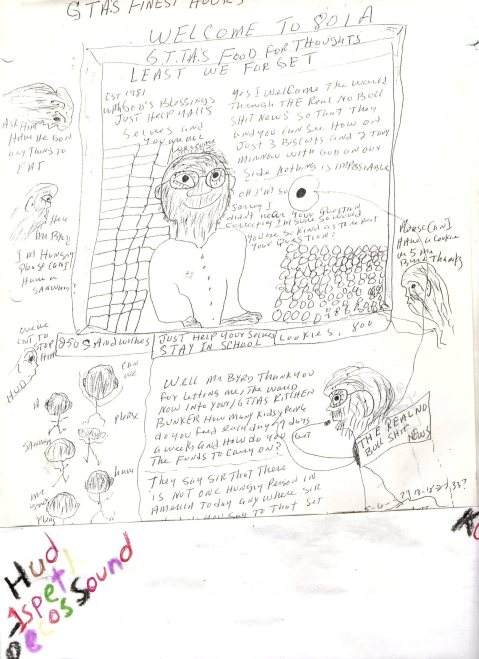 GTA'S FINEST HOURS
WELCOME TO 801A
G.T.TA'S FOOD FOR THOUGHTS
LEAST WE FORGET
EST 1981
WITH GOD'S BLESSINGS
JUST HELP
SELVES AND
YOU ARE
Yes I WELCOME THE WORLD
THROUGH THE REAL NO BULL
SHIT NEWS SO THAT THEY
AND YOU CAN SEE HOW ON
JUST 3 BISCUITS AND 2 TINY
MINNOW WITH GOD ON OUR
SIDE NOTHING IS IMPOSSIABLE
OH I'M SO
SORRY I
DIDN'T HEAR YOUR QUESTION
CORRECTLY I'M SURE SO WOULD
YOU BE SO KIND AS TO
YOUR QUESTION?
ASK HIM
HAVE HE GOT
ANY THING TO
EAT
HEY
MR BYRD
I'M HUNGRY
PLEASE CAN I
HAVE A
SANDWICH?
PLEASE CAN I
HAVE A COOKIE
BYRD THANKS
WE'VE
GOT TO
STOP
HIM
HUD
950 SANDWICHES
JUST HELP YOUR SELVES
STAY IN SCHOOL
COOKIES, 800
CAN
WE
PLEASE
HAVE
WELL MR BYRD THANK YOU
FOR LETTING ME, THE WORLD
NOW INTO YOUR/GTTAS KITCHEN
BUNKER HOW MANY KIDS/PEOPLE
DO YOU FEED EACH DAY 7 DAYS
A WEEKS AND HOW DO YOU GET
THE FUNDS TO CARRY ON?
THEY SAY SIR THAT THERE
IS NOT ONE HUNGRY PERSON IN
AMERICA TODAY ANY WHERE SIR
YOU SAY TO THAT SET
THE REAL NO
BULL SHIT
NEWS
Hud
Sound